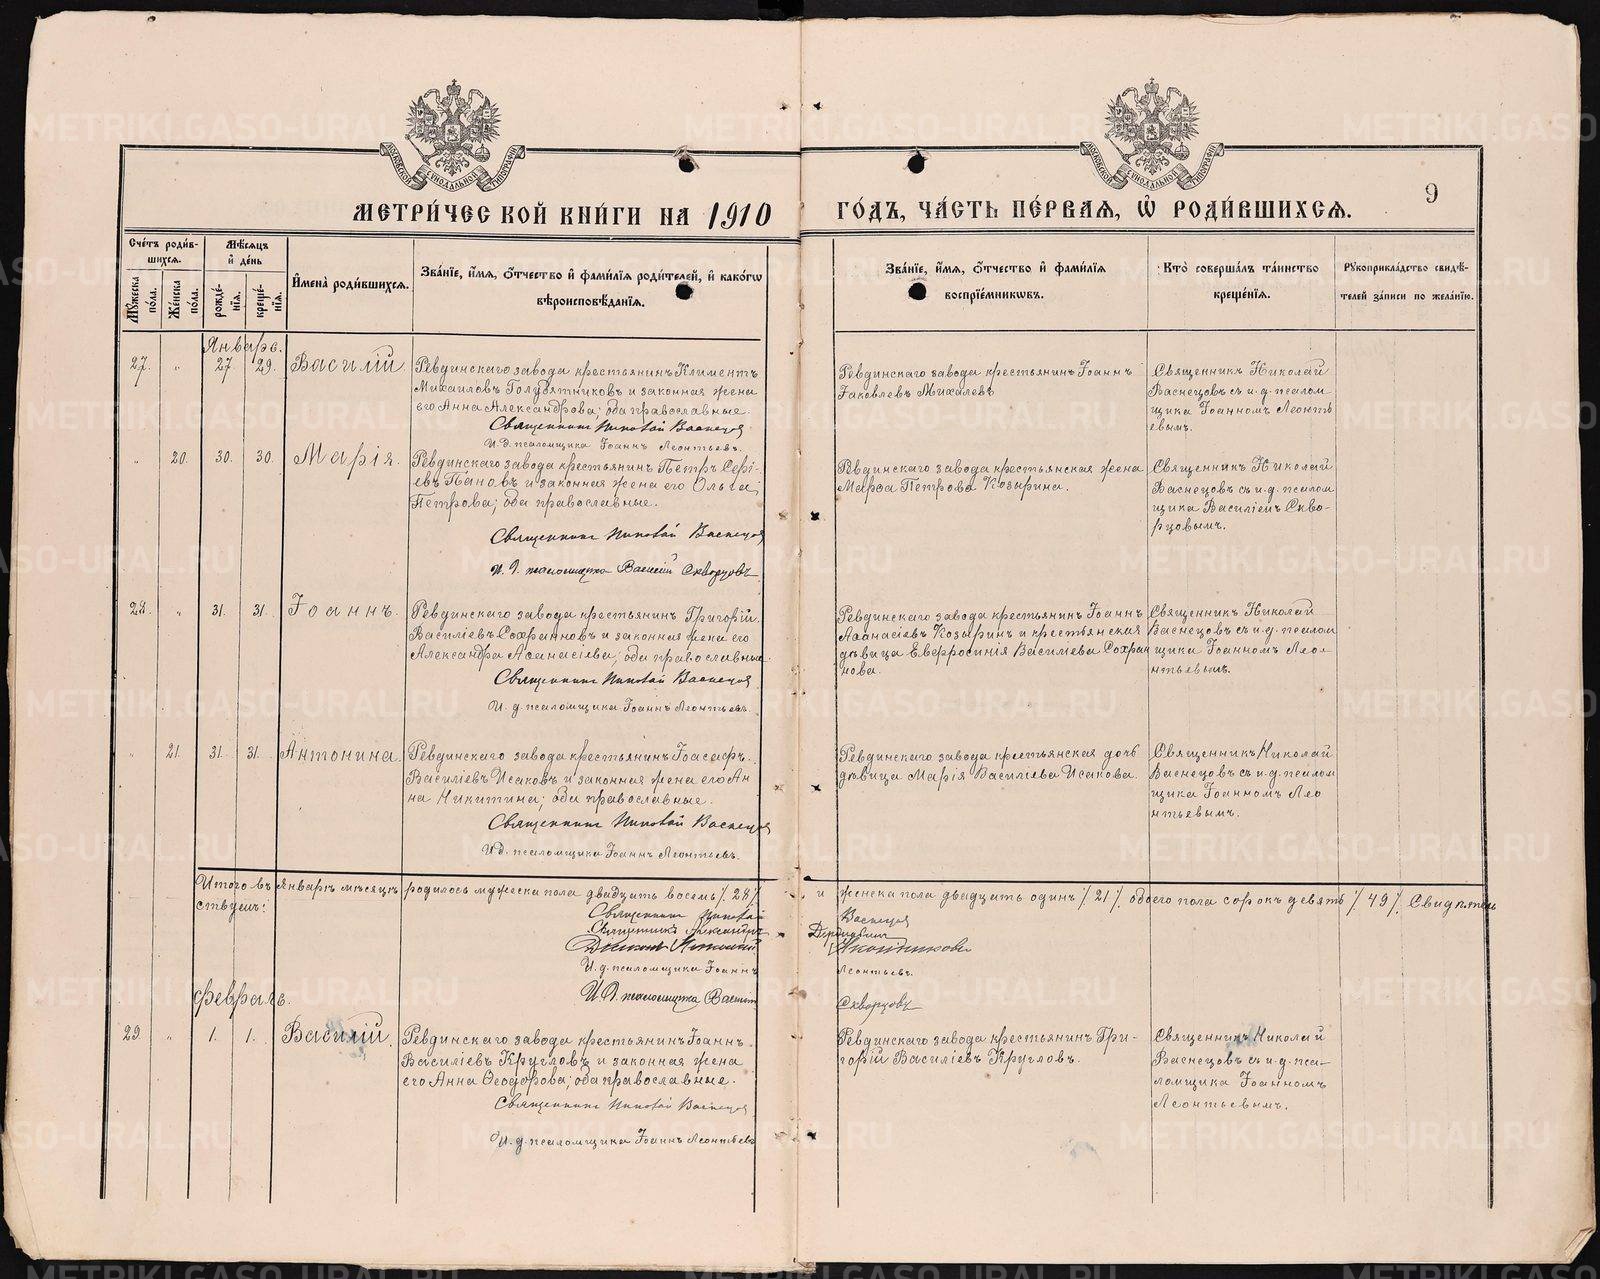 МЕТРИ́ЧЕСКОЙ КНИ́ГИ НА 1910 ГО́ДЪ, ЧА́СТЬ ПЕ́РВАѦ, Ѡ҆ РОДИ́ВШИХСѦ.
9
Сче́тъ роди́в-
шихсѧ.
Мꙋ́жеска
по́ла.
Же́нска
по́ла.
Мѣ́сѧцъ
и҆ де́нь
рожде́-
нїѧ.
креще́-
нїѧ.
И҆мена̀ роди́вшихсѧ.
Зва́нїе, и҆́мѧ, ѻ҆́тчество и҆ фами́лїѧ роди́телей, и҆ како́гѡ
вѣроисповѣ́данїѧ.
Зва́нїе, и҆́мѧ, ѻ҆́тчество и҆ фами́лїѧ
воспрїе́мникѡвъ.
Кто̀ соверша́лъ та́инство
креще́нїѧ.
Рꙋкоприкла́дство свидѣ́-
телей за́писи по жела́нїю.
Январь.
27. " 27 29. Василій
Ревдинскаго завода крестьянинъ Климентъ
Михаиловъ Голубятниковъ и законная жена
его Анна Александрова; оба православные.
Священникъ Николай Васнецов
И. д. псаломщика Іоаннъ Леонтьевъ.
Ревдинскаго завода крестьянинъ Іоаннъ
Іаковлевъ Михалевъ
Священникъ Николай
Васнецовъ съ и. д. псалом
щика Іоанномъ Леонть
евымъ.
" 20. 30. 30. Марія.
Ревдинскаго завода крестьянинъ Петръ Сергі-
евъ Пановъ и законная жена его Ольга
Петрова; оба православные.
Священникъ Николай Васнецов
И. д. псаломщика Василій Скворцовъ
Ревдинскаго завода крестьянская жена
Марѳа Петрова Козырина.
Священникъ Николай
Васнецовъ съ и. д. псалом
щика Василіемъ Скво-
рцовымъ.
28. " 31. 31. Іоаннъ.
Ревдинскаго завода крестьянинъ Григорій
Василіевъ Сохранновъ и законная жена его
Александра Аѳанасіева; оба православные.
Священникъ Николай Васнецов
И. д. псаломщика Іоаннъ Леонтьевъ.
Ревдинскаго завода крестьянинъ Іоаннъ
Аѳанасіевъ Козыринъ и крестьянская
дѣвица Евфросинія Василіева Сохран
нова.
Священникъ Николай
Васнецовъ съ и. д. псалом
щика Іоанномъ Лео-
нтьевымъ.
" 21. 31. 31. Антонина.
Ревдинскаго завода крестьянинъ Іоасафъ
Василіевъ Исаковъ и законная жена его Ан
на Никитина; оба православные.
Священникъ Николай Васнецов
И. д. псаломщика Іоаннъ Леонтьевъ.
Ревдинскаго завода крестьянская дочь
дѣвица Марія Василіева Исакова.
Священникъ Николай
Васнецовъ съ и. д. псалом
щика Іоанномъ Лео
нтьевымъ.
Итого въ Январѣ мѣсяцѣ родилось мужеска пола двадцать восемь /28/ и женска пола двадцать одинъ /21/ обоего пола сорокъ девять /49/, Свидѣтель
ствуемъ:
Священникъ Николай Васнецов
Священникъ Александръ
Діаконъ
И. д. псаломщика Іоаннъ Леонтьевъ.
И. д. псаломщика Василій Скворцовъ
Февраль.
29. " 1. 1. Василій.
Ревдинскаго завода крестьянинъ Іоаннъ
Василіевъ Кругловъ и законная жена
его Анна Ѳеодорова; оба православные.
Священникъ Николай Васнецов
И. д. псаломщика Іоаннъ Леонтьевъ
Ревдинскаго завода крестьянинъ Гри-
горій Василіевъ Кругловъ.
Священникъ Николай
Васнецовъ съ и. д. пса-
ломщика Іоанномъ
Леонтьевымъ.
METRIKI.GASO-URAL.RU